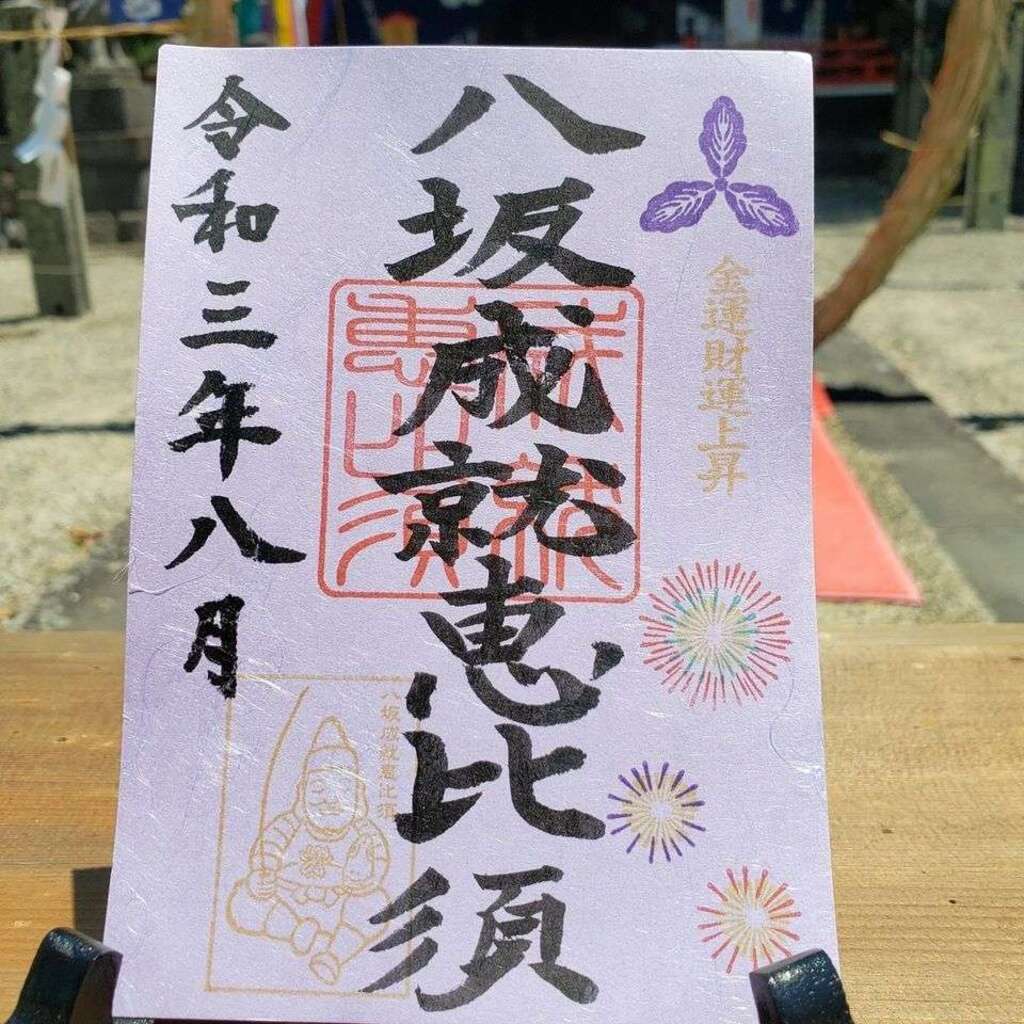 金運財運上昇
八坂成就恵比須
成就恵比須
八坂成就恵比須
令和三年八月